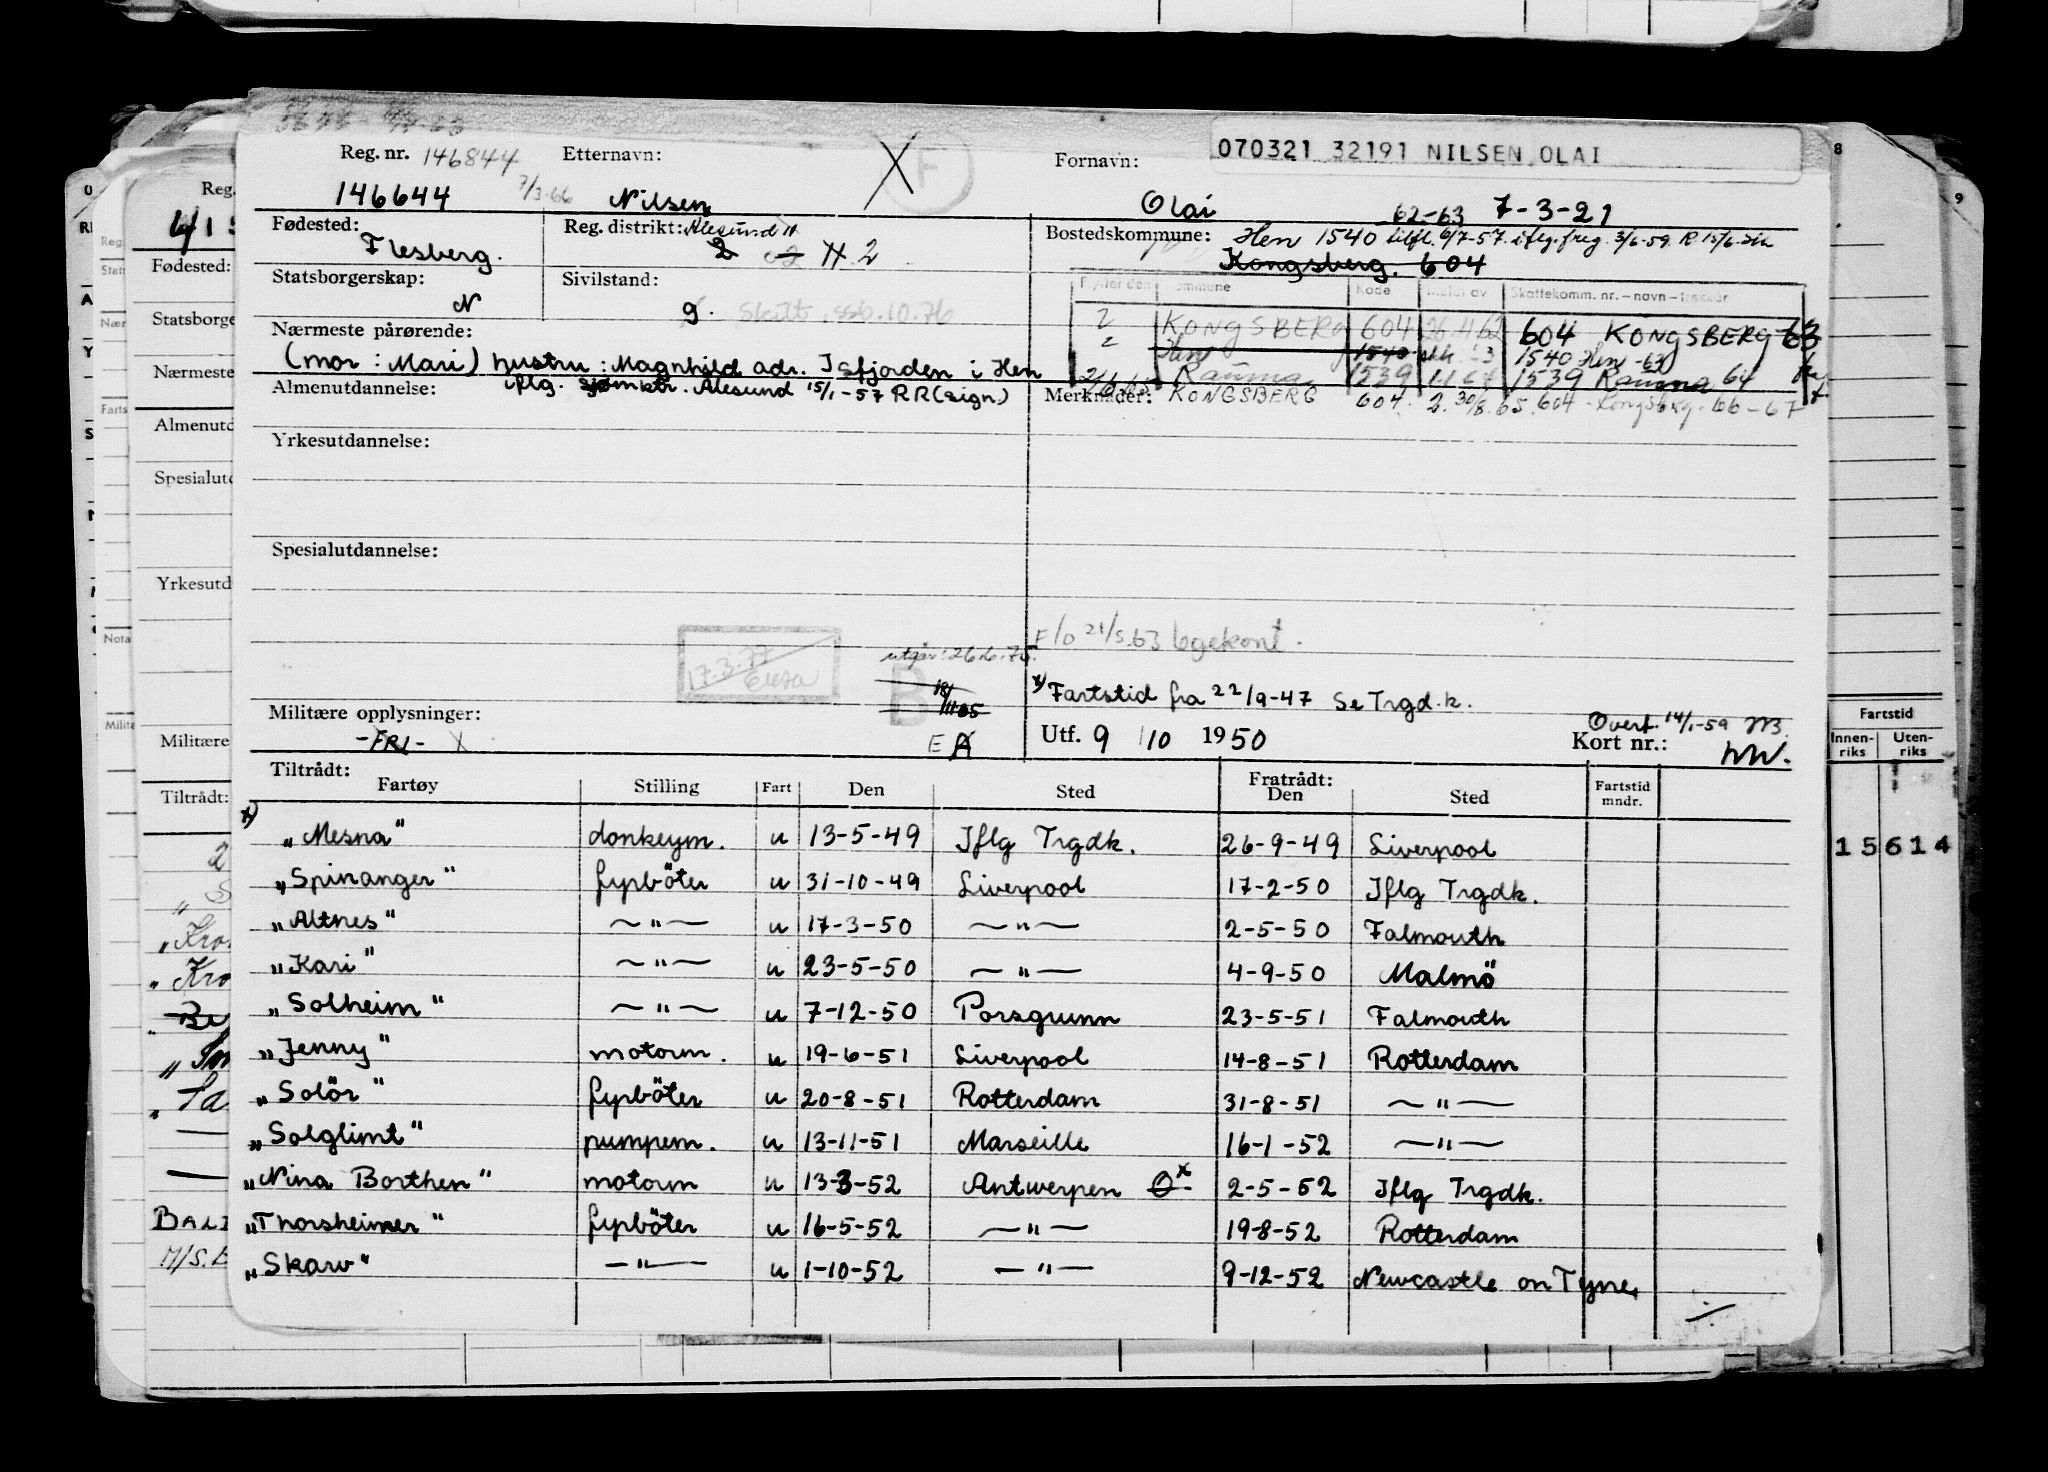 Reg. nr. 146844 Etternavn: X F Fornavn: 070321 32191 NILSEN OLAI
146644 7/3-66 Nilsen Olai 62-63 7-3-21
Fødested: Reg. distrikt: Ålesund Bostedskommune: Hen 1540 tilfl. 6/7-57 iflg. freg. 3/6-59. R 15/6
Flesberg. 2 H 2 Kongsberg. 604
Statsborgerskap: Sivilstand: Kode Skattekomm. nr. – navn –
N g. Skilt, ssb. 10.76 2 KONGSBERG 604 26.4.62 604 KONGSBERG 63
Nærmeste pårørende: Hen 1540 1540 Hen -63
(mor: Mari) hustru: Magnhild adr. Isfjorden i Hen Rauma 1539 1539 Rauma 64
Almenutdannelse: iflg. sjømktr. Ålesund 15/1-57 RR (sign) Merknader: KONGSBERG 604. 2. 30/8.65. 604 Kongsbrg. 66-67
Yrkesutdannelse:
Spesialutdannelse:
F/O 21/5.63 bgekont.
17.3.77 utgår: 26.6.75.
B x) Fartstid fra 22/9-47 Se Trgd.k.
Militære opplysninger: Overf. 14/1-59
-FRI- X E A Utf. 9/10 1950 Kort nr.:
Tiltrådt: Fratrådt:
Fartøy Stilling Fart Den Sted Den Sted Fartstid mndr.
x) „Mesna" donkeym. u 13-5-49 Iflg Trgdk. 26-9-49 Liverpool
„Spinanger" fyrböter u 31-10-49 Liverpool 17-2-50 Iflg Trgdk.
„Altnes" —"— u 17-3-50 —"— 2-5-50 Falmouth
„Kari" —"— u 23-5-50 —"— 4-9-50 Malmö
„Solheim" —"— u 7-12-50 Porsgrunn 23-5-51 Falmouth
„Jenny" motorm. u 19-6-51 Liverpool 14-8-51 Rotterdam
„Solör" fyrböter u 20-8-51 Rotterdam 31-8-51 —"—
„Solglimt" pumpem. u 13-11-51 Marseille 16-1-52 —"—
„Nina Borthen" motorm u 13-3-52 Antwerpen 2-5-52 Iflg Trgdk.
„Thorsheimer" fyrböter u 16-5-52 —"— 19-8-52 Rotterdam
„Skaw" —"— u 1-10-52 —"— 9-12-52 Newcastle on Tyne.
Reg.
Fødested:
Statsborge
Nærmeste
Almenutd
Spesialutd
Yrkesutd
Militære
Tiltrådt:
Nota
M/S.
Fartstid
Innenriks Utenriks
15 614
8
9